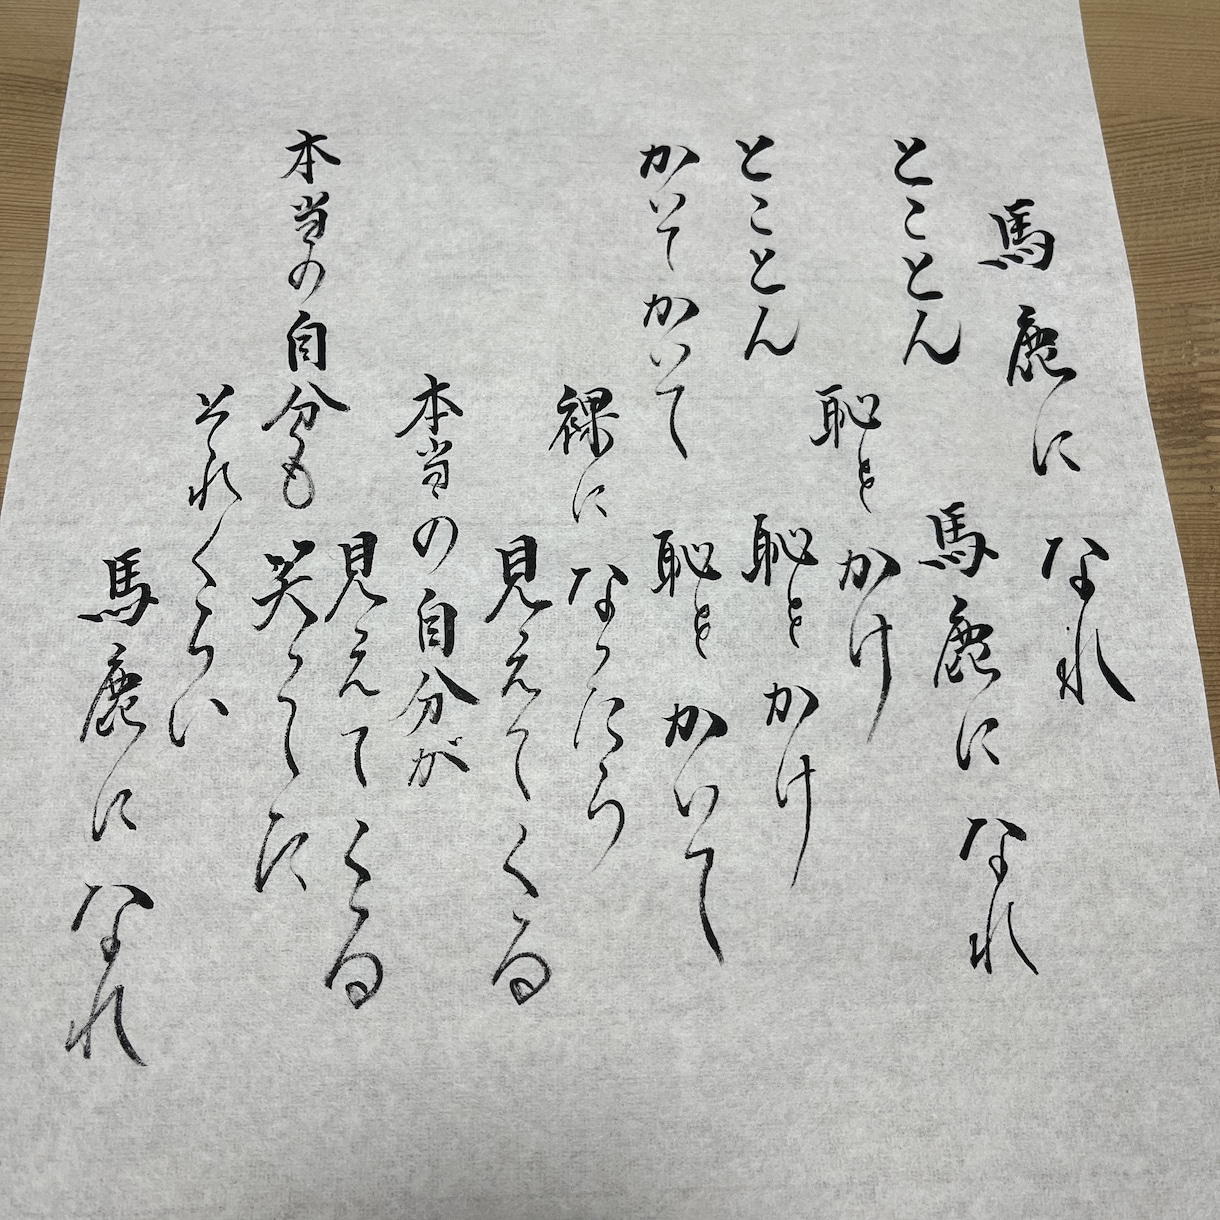 馬鹿になれ
とことん馬鹿になれ
恥をかけ
とことん恥をかけ
かいてかいて恥をかいて
裸になったら
見えてくる
本当の自分が
見えてくる
本当の自分も笑ってた
それくらい
馬鹿になれ